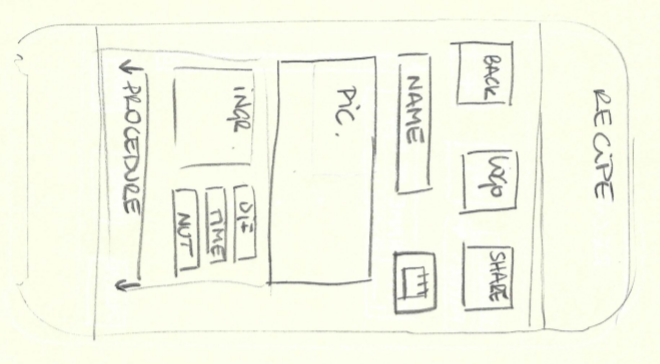 RECIPE
BACK
Logo
SHARE
NAME
PIC.
INGR
DIF
TIME
NUT
PROCEDURE